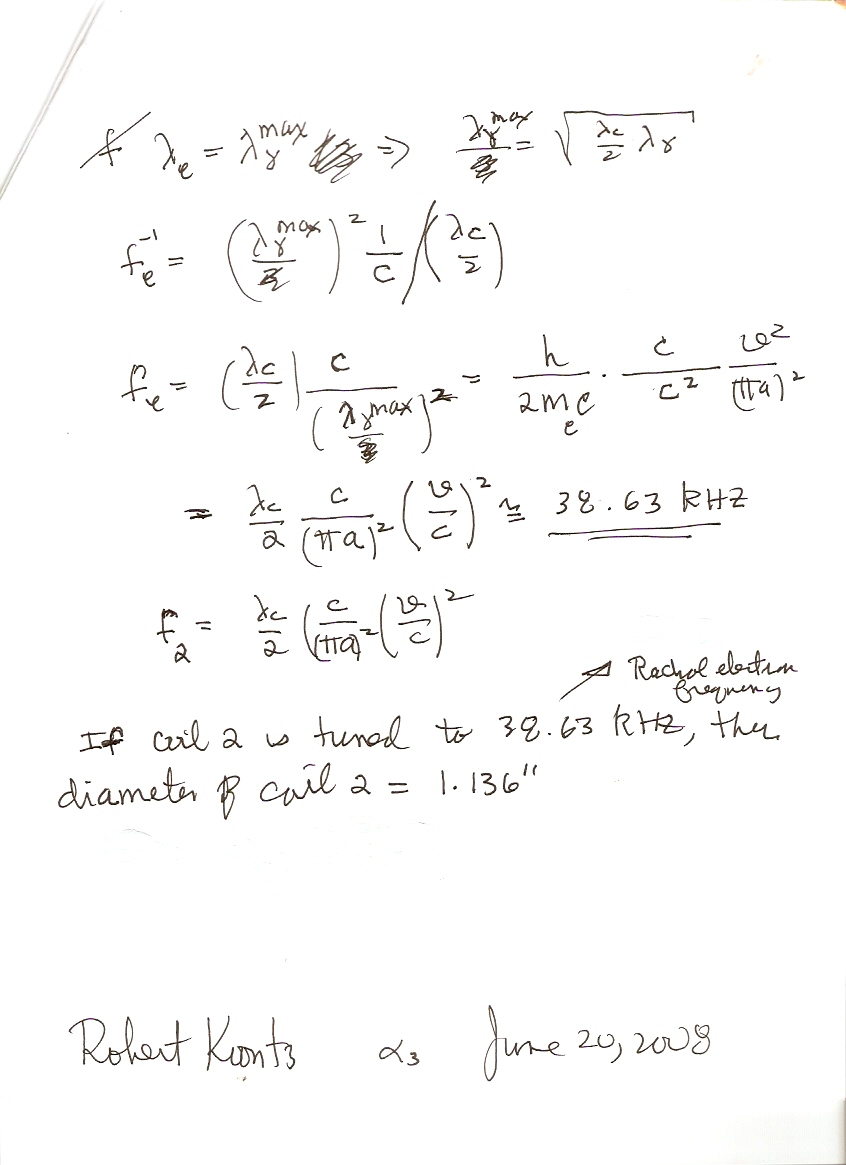 λ_e = λ_γ^max ⇒ λ_γ^max = √(λ_c/2 λ_γ)
f_e^-1 = (λ_γ^max)^2 1/c / (λ_c/2)
f_e = (λ_c/2) c/(λ_γ^max)^2 = h/2m_e c · c/c^2 v^2/(πa)^2
= λ_c/2 c/(πa)^2 (v/c)^2 ≅ 38.63 KHZ
f_2 = λ_c/2 (c/(πa)^2 (v/c)^2
electron
frequency
If coil 2 is tuned to 38.63 KHZ, then
diameter of coil 2 = 1.136"
Robert Koontz α_3 June 20, 2008